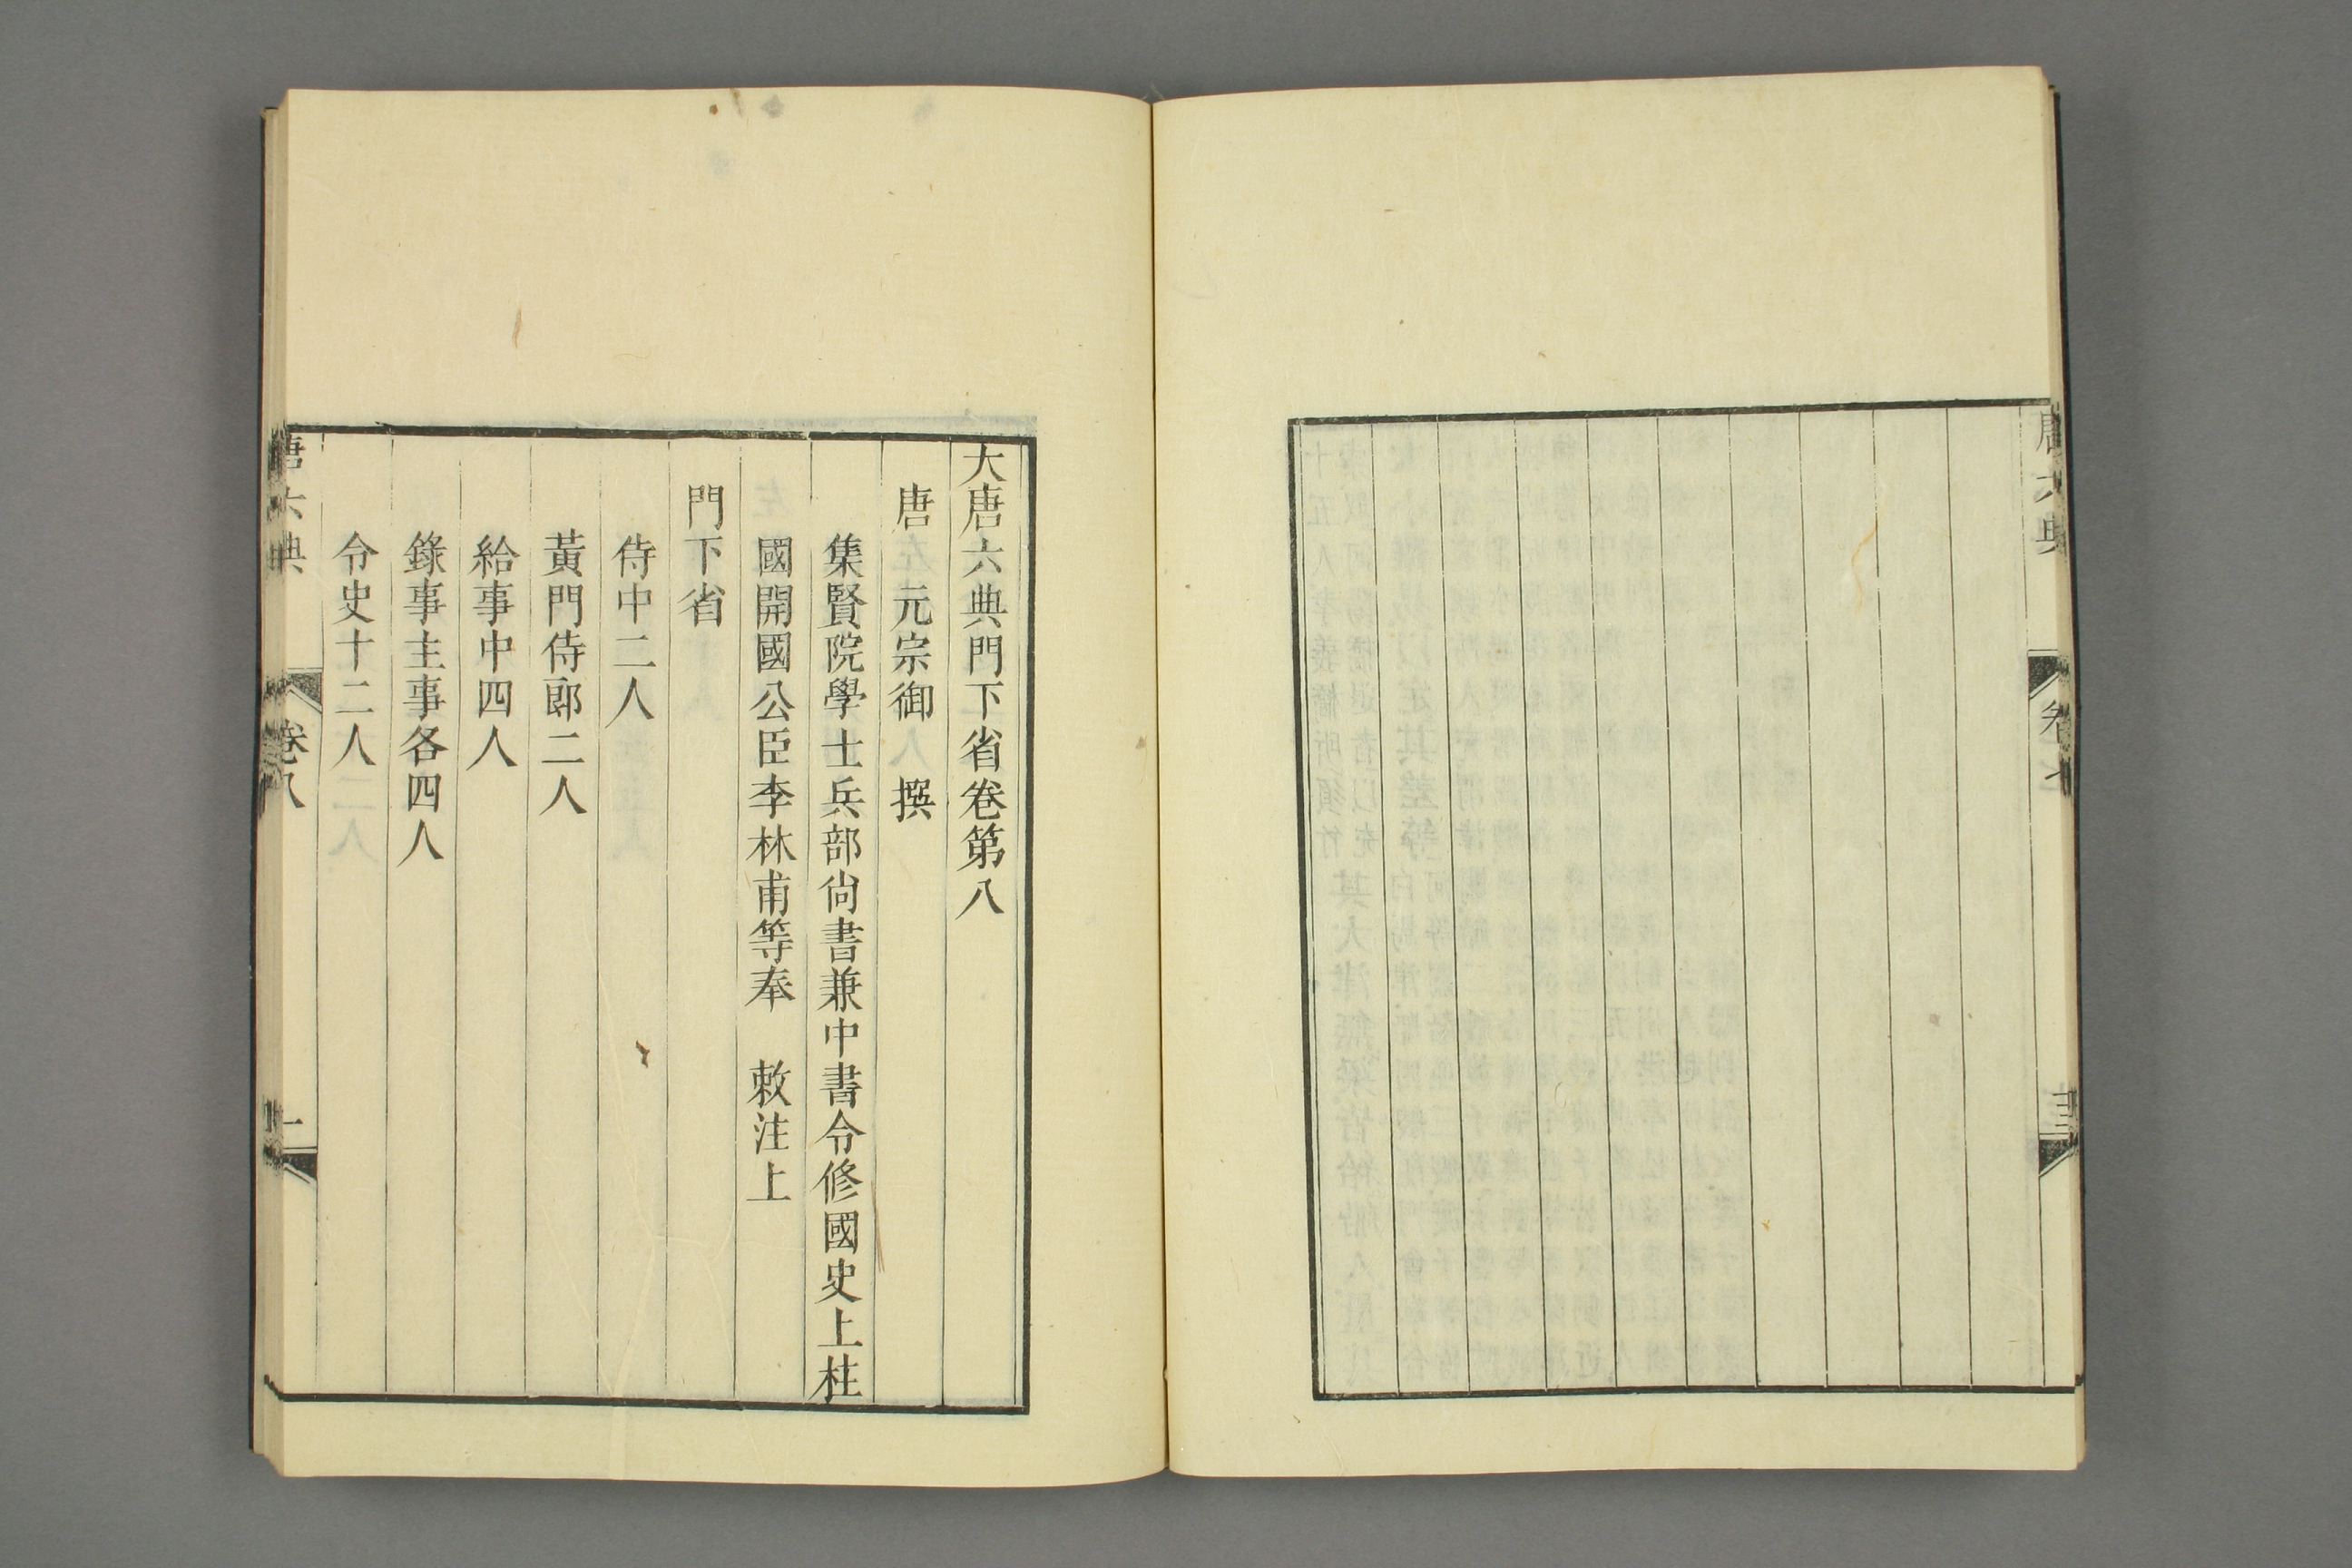 唐六典 卷七 十三
大唐六典門下省卷第八
唐 元宗御 撰
集賢院學士兵部尚書兼中書令修國史上柱
國開國公臣李林甫等奉 敕注上
門下省
侍中二人
黃門侍郎二人
給事中四人
錄事主事各四人
令史十二人
唐六典 卷八 一